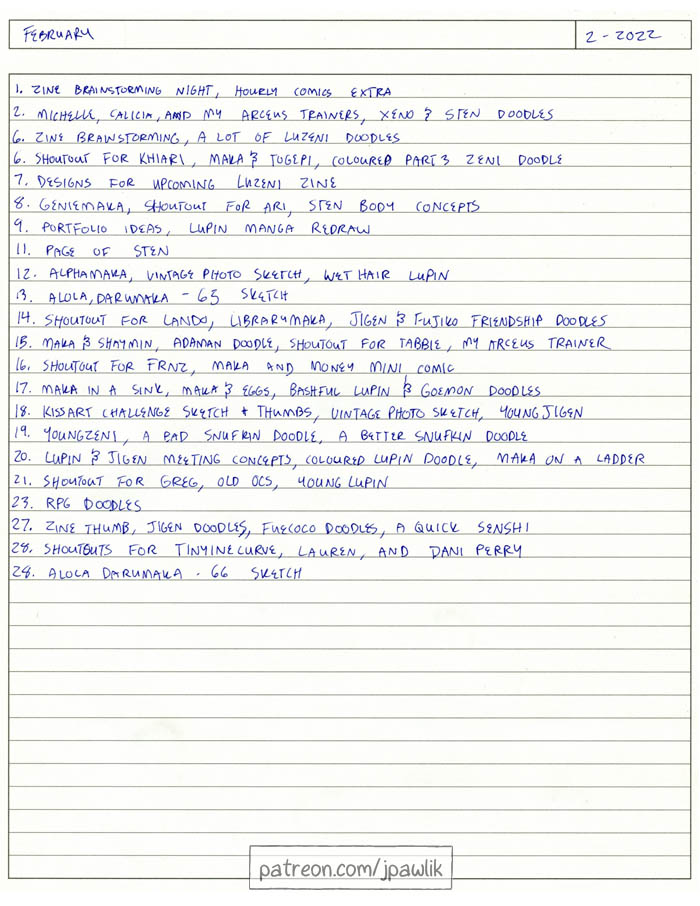 FEBRUARY
2-2022
1. ZINE BRAINSTORMING NIGHT, HOURLY COMICS EXTRA
2. MICHELLE, CALICIA, AND MY ARCEUS TRAINERS, XENO & STEN DOODLES
6. ZINE BRAINSTORMING, A LOT OF LUZENI DOODLES
6. SHOUTOUT FOR KHIARI, MAKA & TOGEPI, COLOURED PART 3 ZENI DOODLE
7. DESIGNS FOR UPCOMING LUZENI ZINE
8. GENIEMAKA, SHOUTOUT FOR ARI, STEN BODY CONCEPTS
9. PORTFOLIO IDEAS, LUPIN MANGA REDRAW
11. PAGE OF STEN
12. ALPHAMAKA, VINTAGE PHOTO SKETCH, WET HAIR LUPIN
13. ALOLA, DARUMAKA - 65 SKETCH
14. SHOUTOUT FOR LANDO, LIBRARYMAKA, JIGEN & FUJIKO FRIENDSHIP DOODLES
15. MAKA & SHAYMIN, ADAMAN DOODLE, SHOUTOUT FOR TABBIE, MY ARCEUS TRAINER
16. SHOUTOUT FOR FRNZ, MAKA AND MONEY MINI COMIC
17. MAKA IN A SINK, MAKA & EGGS, BASHFUL LUPIN & GOEMON DOODLES
18. KISSART CHALLENGE SKETCH + THUMBS, VINTAGE PHOTO SKETCH, YOUNG JIGEN
19. YOUNGZENI, A BAD SNUFKIN DOODLE, A BETTER SNUFKIN DOODLE
20. LUPIN & JIGEN MEETING CONCEPTS, COLOURED LUPIN DOODLE, MAKA ON A LADDER
21. SHOUTOUT FOR GREG, OLD OCS, YOUNG LUPIN
23. RPG DOODLES
27. ZINE THUMB, JIGEN DOODLES, FUECOCO DOODLES, A QUICK SENSHI
28. SHOUTOUTS FOR TINYINECURVE, LAUREN, AND DANI PERRY
28. ALOLA DARUMAKA - 66 SKETCH
patreon.com/jpawlik